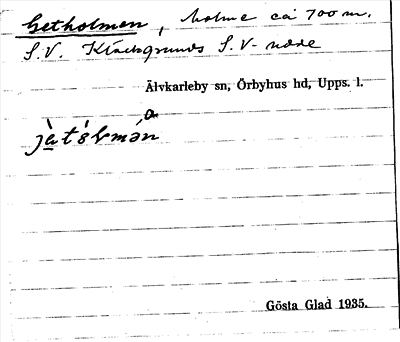 Getholmen, holme ca 700 m.
S.V. Klacksgrunds S.V-udde
Älvkarleby sn, Örbyhus hd, Upps. l.
Gösta Glad 1935.